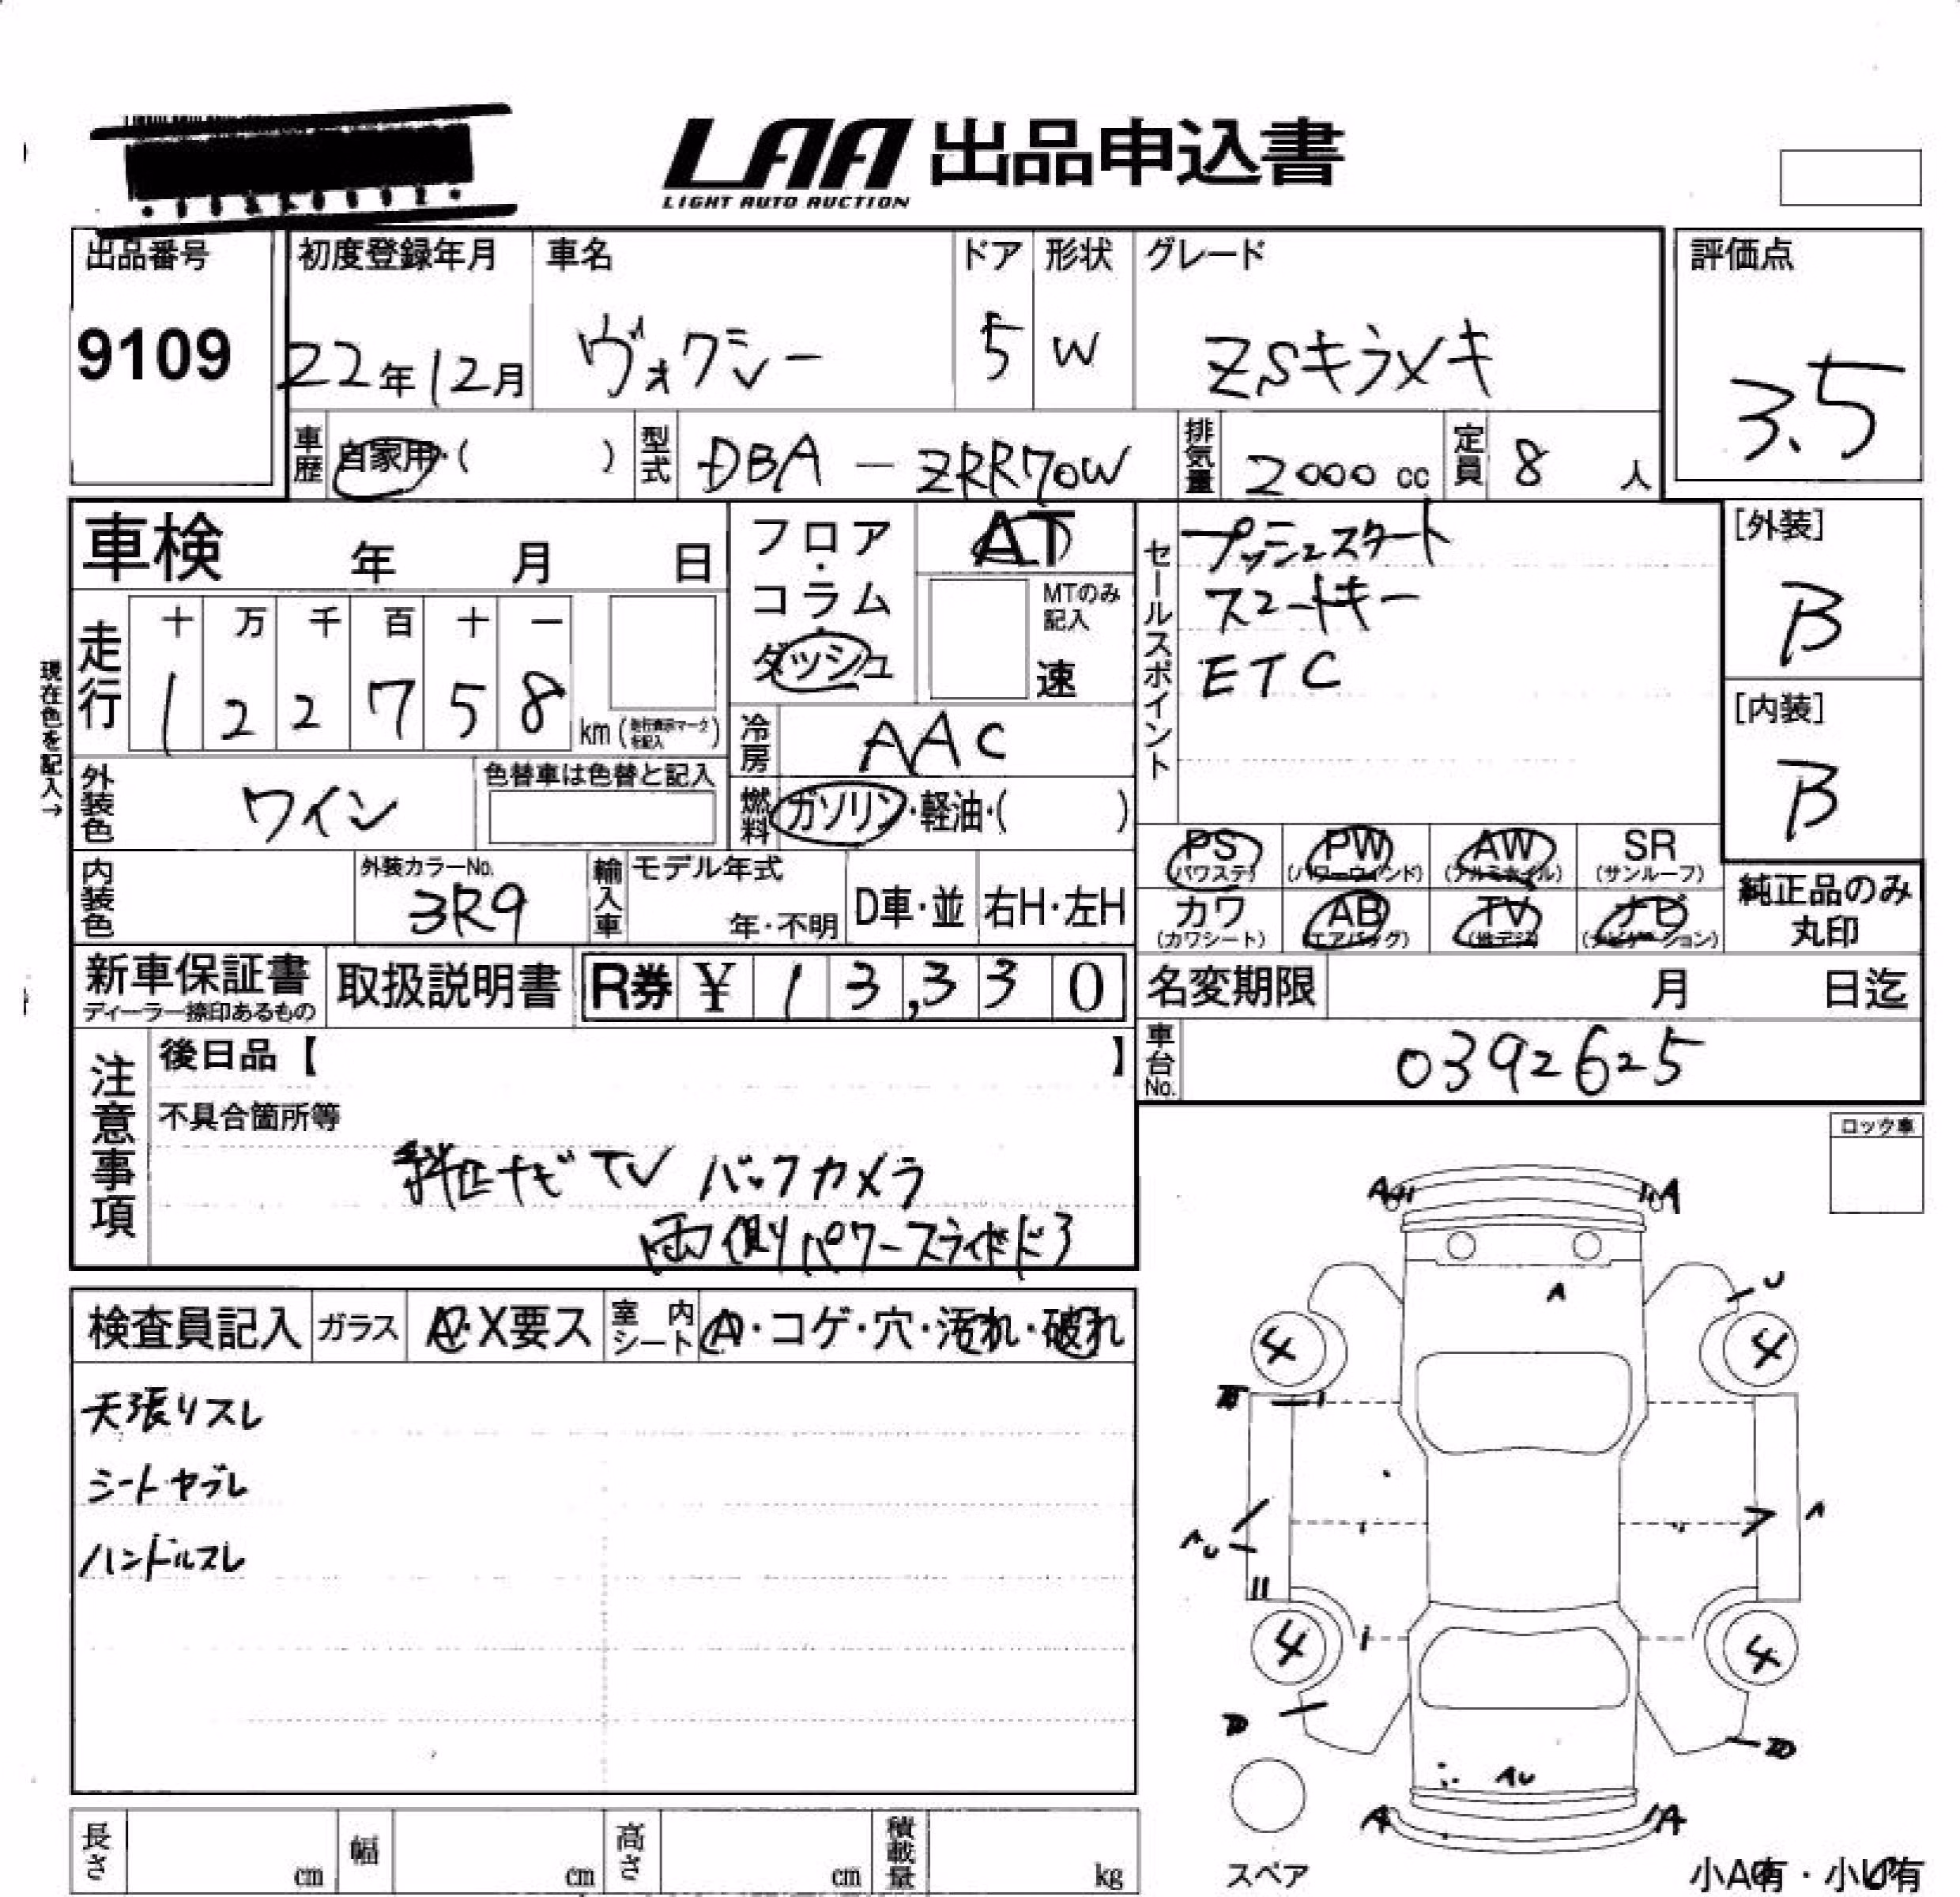 LAA 出品申込書
LIGHT AUTO AUCTION
出品番号
9109
初度登録年月
22年12月
車名
ヴォクシー
ドア
5
形状
W
グレード
ZSキラメキ
評価点
3.5
車歴 自家用・( )
型式 DBA-ZRR70W
排気量 2000cc
定員 8人
車検 年 月 日
フロア・コラム・ダッシュ
AT
MTのみ記入
速
セールスポイント
プッシュスタート
スマートキー
ETC
[外装]
B
[内装]
B
現在色を記入→
走行
十 万 千 百 十 一
1 2 2 7 5 8 km (走行表示マークを記入)
冷房 AAC
外装色 ワイン
色替車は色替と記入
燃料 ガソリン・軽油・( )
PS (パワステ)
PW (パワーウィンド)
AW (アルミホイル)
SR (サンルーフ)
カワ (カワシート)
AB (エアバッグ)
TV (地デジ)
ナビ (ナビゲーション)
純正品のみ丸印
内装色
外装カラーNo.
3R9
輸入車
モデル年式
年・不明
D車・並
右H・左H
新車保証書
ディーラー捺印あるもの
取扱説明書
R券 ¥ 13,330
名変期限 月 日迄
車台No. 0392625
注意事項
後日品【 】
不具合箇所等
ナビ TV バックカメラ
両側パワースライドドア
ロック車
検査員記入
ガラス A・X要ス
室内シート A・コゲ・穴・汚れ・破れ
天張りスレ
シートヤブレ
ハンドルスレ
A A
A U
4 4
A
A U
4 4
AU
A A
スペア
小A有・小U有
長さ cm
幅 cm
高さ cm
積載量 kg